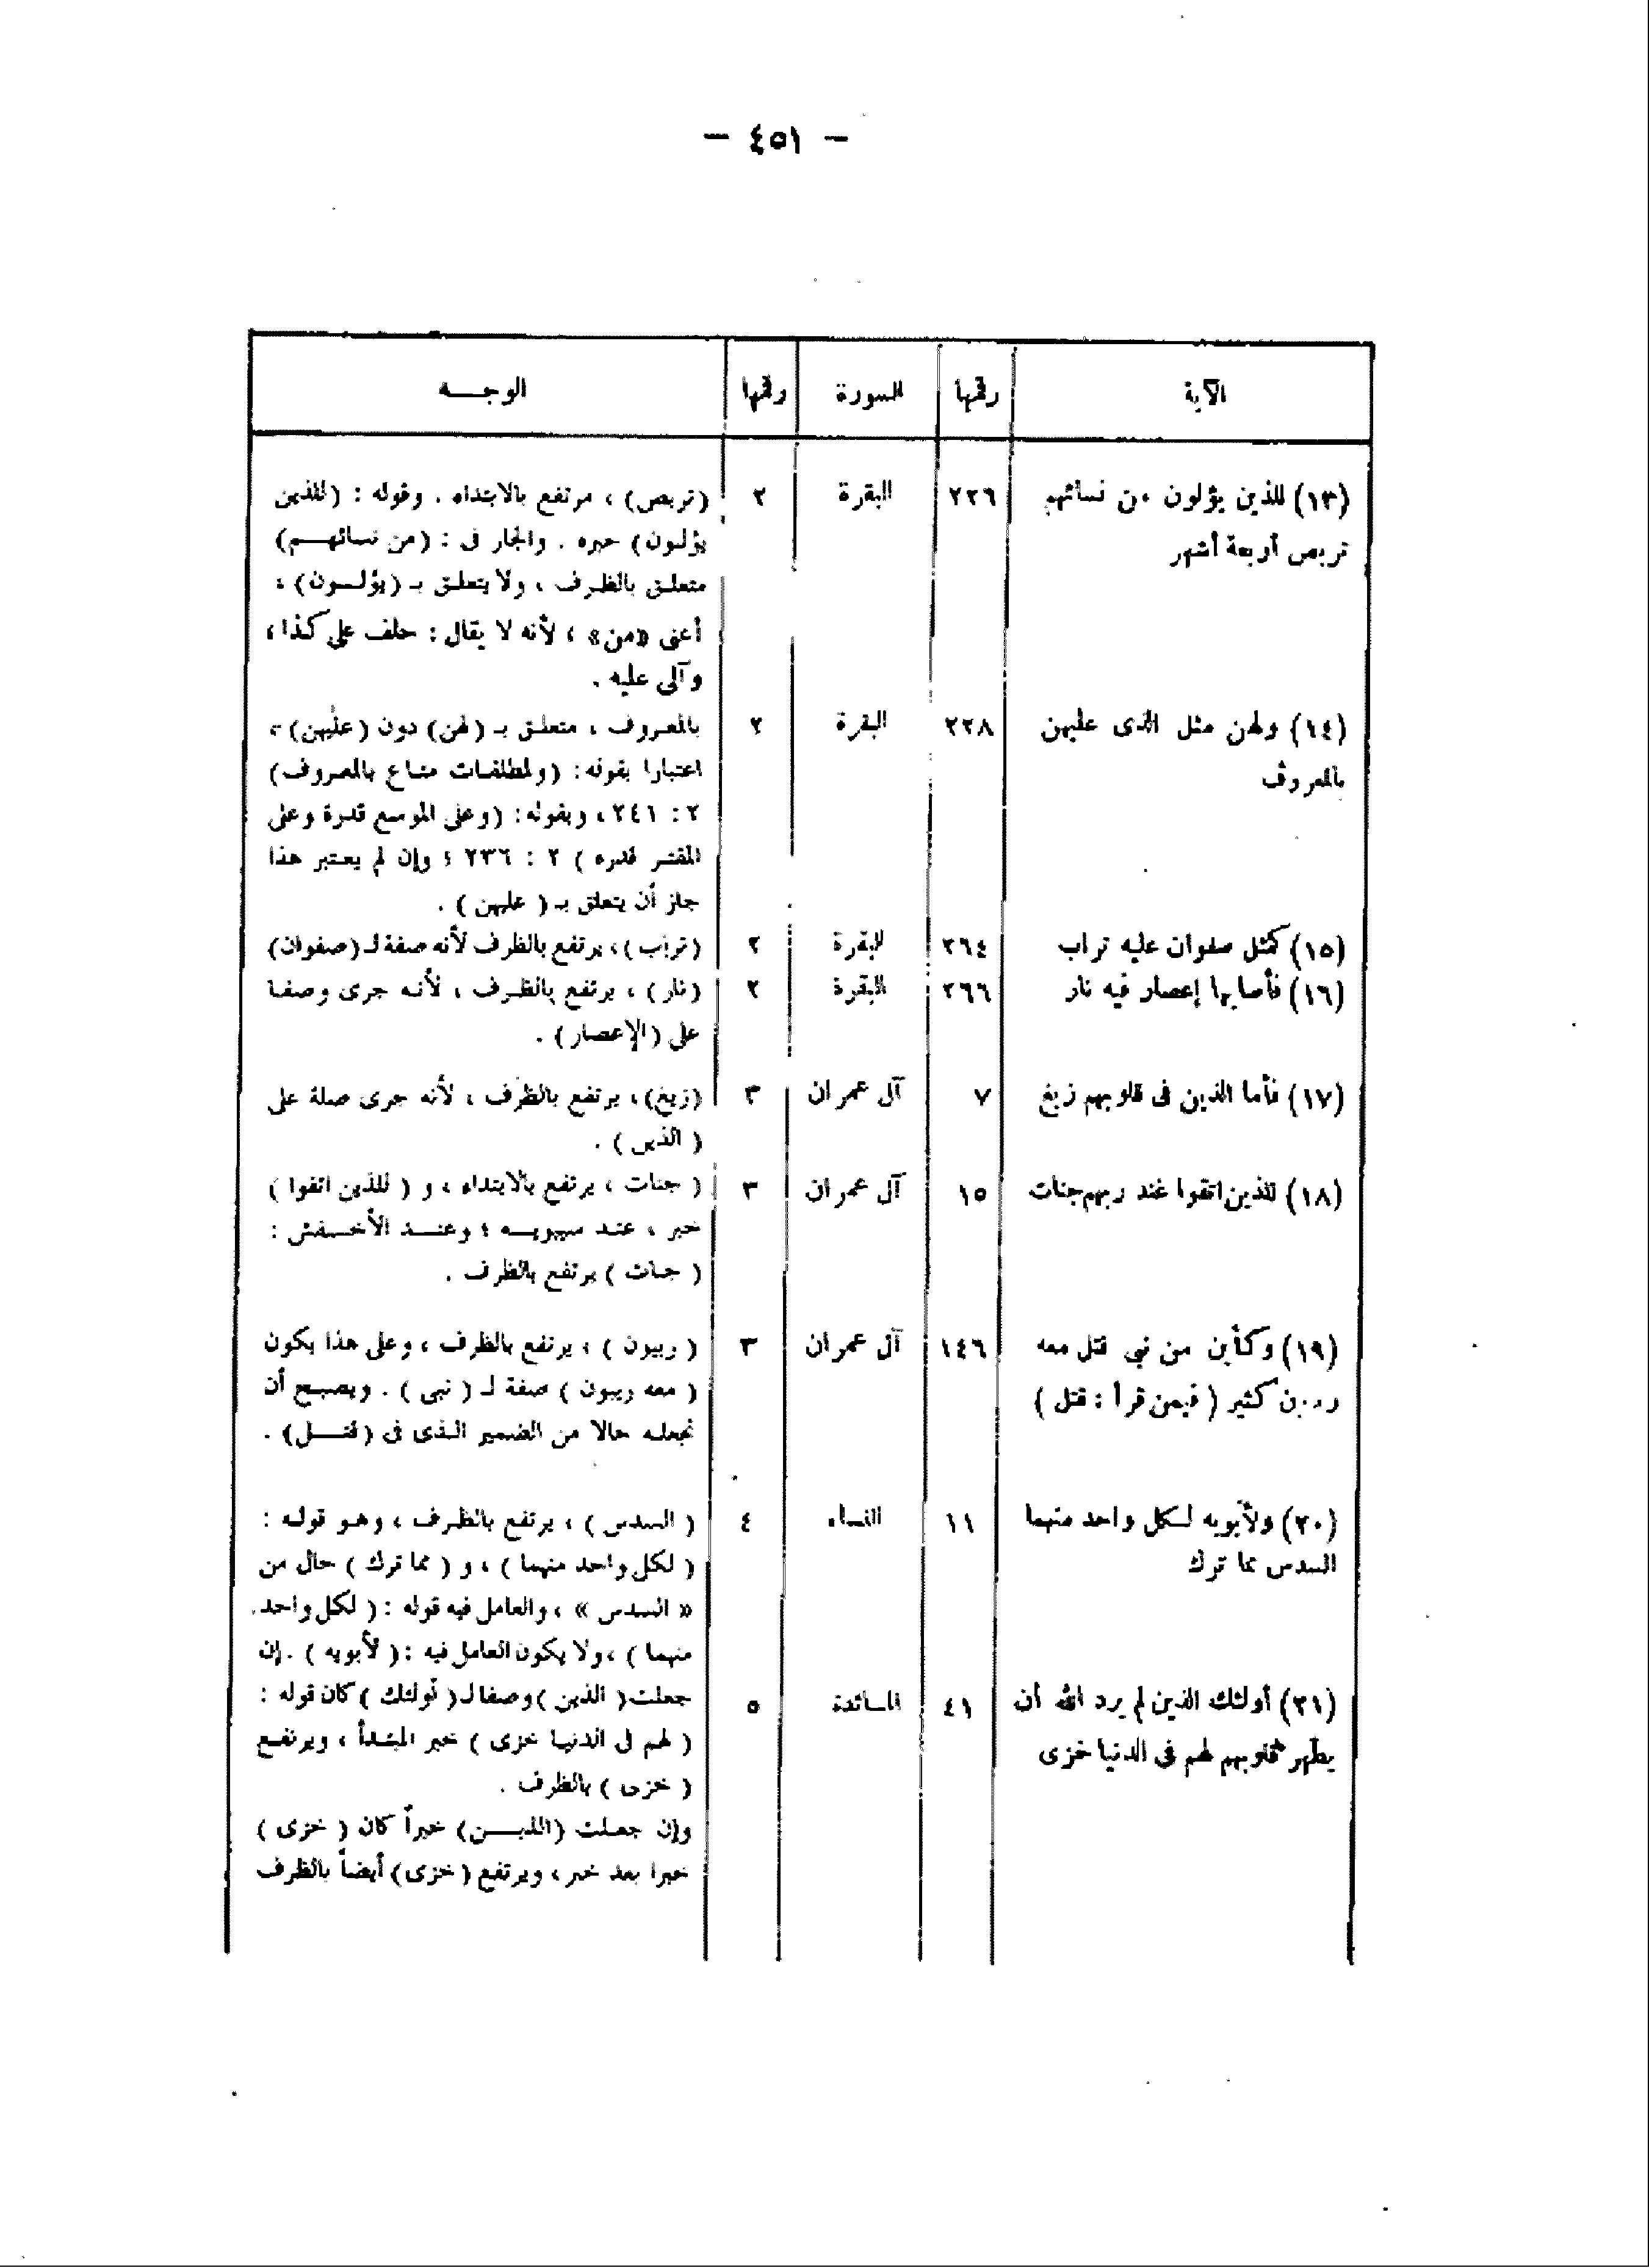 — ٤٥١ —
الآية رقمها السورة رقمها الوجـــه
(١٣) للذين يؤلون من نسائهم ٢٢٦ البقرة ٢ (تربص) ، مرتفع بالابتداء . وقوله : (للذين
تربص أربعة أشهر يؤلون) خبره . والجار فى : (من نسائهــم)
متعلق بالظرف ، ولا يتعلق بـ (يؤلــون) ،
أعنى «من» ، لأنه لا يقال : حلف على كذا ،
وآلى عليه .
(١٤) ولهن مثل الذى عليهن ٢٢٨ البقرة ٢ بالمعروف ، متعلق بـ (لهن) دون (عليهن) ،
بالمعروف اعتبارا بقوله : (وللمطلقات متاع بالمعروف)
٢ : ٢٤١ ، وبقوله : (وعلى الموسع قدرة وعلى
المقتر قدره ) ٢ : ٢٣٦ ؛ وإن لم يعتبر هذا
جاز أن يتعلق بـ ( عليهن ) .
(١٥) كمثل صفوان عليه تراب ٢٦٤ البقرة ٢ (تراب) ، يرتفع بالظرف لأنه صفة لـ (صفوان)
(١٦) فأصابها إعصار فيه نار ٢٦٦ البقرة ٢ (نار) ، يرتفع بالظرف ، لأنه جرى وصفا
على (الإعصار) .
(١٧) فأما الذين فى قلوبهم زيغ ٧ آل عمران ٣ (زيغ) ، يرتفع بالظرف ، لأنه جرى صلة على
( الذين ) .
(١٨) للذين اتقوا عند ربهم جنات ١٥ آل عمران ٣ ( جنات ، يرتفع بالابتداء ، و ( للذين اتقوا )
خبر ، عند سيبويــه ؛ وعنــد الأخــفش :
( جنات ) يرتفع بالظرف .
(١٩) وكأين من نبي قتل معه ١٤٦ آل عمران ٣ ( ربيون ) ، يرتفع بالظرف ، وعلى هذا يكون
كثير ( فيمن قرأ : قتل ) ( معه ربيون ) صفة لـ ( نبى ) . ويصبح أن
تجعله حالا من الضمير الذى فى (قتــل) .
(٢٠) ولأبويه لكل واحد منهما ١١ النساء ٤ ( السدس ) ، يرتفع بالظرف ، وهو قوله :
السدس مما ترك ( لكل واحد منهما ) ، و ( مما ترك ) حال من
« السدس » ، والعامل فيه قوله : ( لكل واحد
منهما ) ، ولا يكون العامل فيه : ( لأبويه ) . إن
(٢١) أولئك الذين لم يرد الله أن ٤١ المائدة ٥ جعلت ( الذين ) وصفا لـ ( أولئك ) كان قوله :
يطهر قلوبهم لهم فى الدنيا خزى ( لهم فى الدنيا خزى ) خبر المبتدأ ، ويرتفع
( خزى ) بالظرف .
وإن جعلت خبراً كان ( خزى )
خبرا بعد خبر ، ويرتفع ( خزى) أيضاً بالظرف